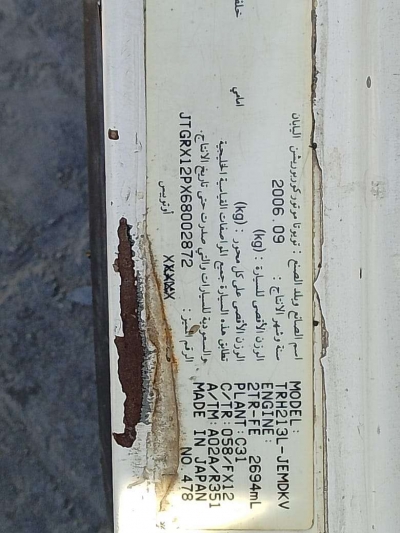 MODEL:
TRH213L-JEMDKV
ENGINE:
2TR-FE 2694mL
PLANT:C31
C/TR:058/FX12
A/TM:A02A/R351
MADE IN JAPAN
NO.478
اسم الصانع وبلد الصنع : تويوتا موتور كوربوريشن اليابان
سنة وشهر الانتاج : 2006.09
الوزن الأقصى للسيارة : (kg)
الوزن الأقصى على كل محور : (kg) امامي خلفي
تطابق هذه السيارة جميع المواصفات القياسية الخليجية
والسعودية للسيارات والتي صدرت حتى تاريخ الانتاج.
الرقم المميز : JTGRX12PX68002872
أوتوبيس